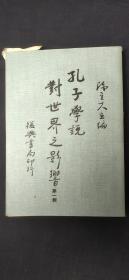 陳立夫主編
孔子學說
對世界之影響
第一輯
復興書局印行